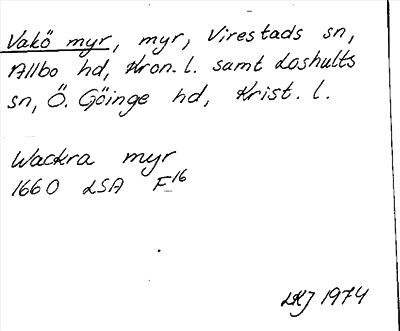 Vakö myr, myr, Virestads sn,
Allbo hd, Kron. l. samt Loshults
sn, Ö. Göinge hd, Krist. l.
Wackra myr
1660 LSA F16
LKJ 1974